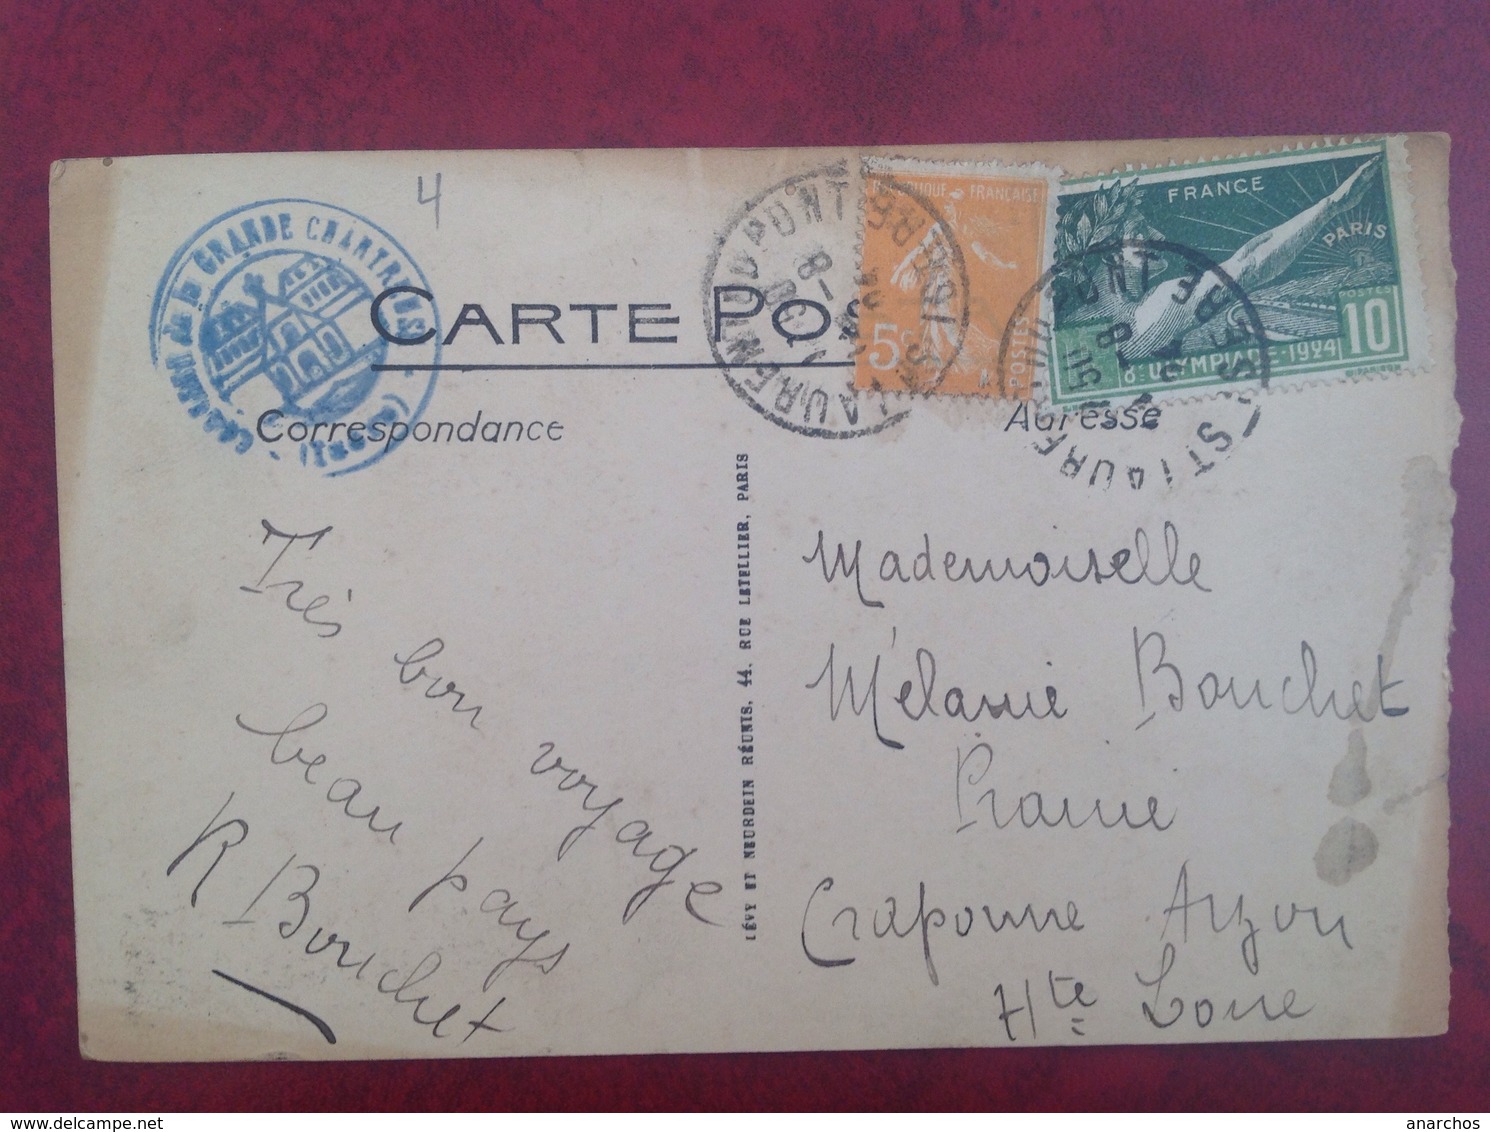 4
GRANDE CHARTREUSE
CARTE PO
Correspondance
Adresse
ST LAURENT DU PONT ISERE
REPUBLIQUE FRANÇAISE
5c
POSTES
ST LAURENT DU PONT ISERE
FRANCE
PARIS
POSTES
10
8e OLYMPIADE 1924
Très
bon voyage
beau pays
R Bouchet
LÉVY ET NEURDEIN RÉUNIS, 44, RUE LETELLIER, PARIS
Mademoiselle
Mélanie Bouchet
Prairie
Craponne Arzon
Hte Loire
www.delcampe.net
anarchos